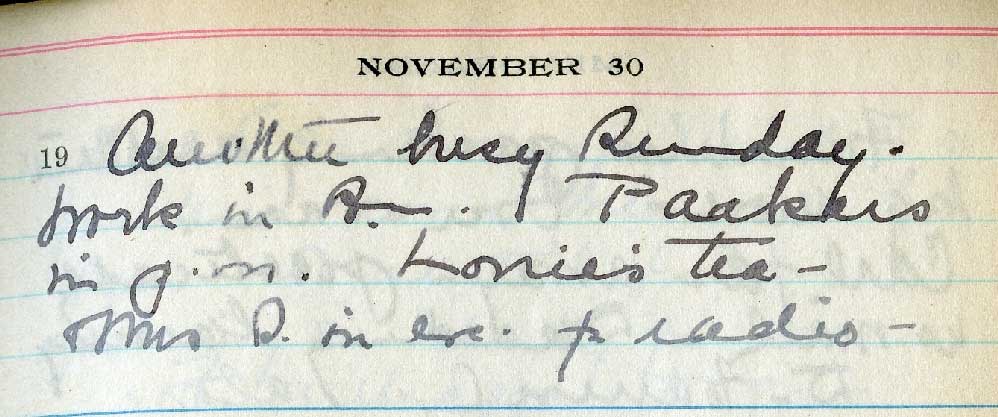 NOVEMBER 30
19 Another busy Sunday.
work in A.m. Paakkers
in p.m. Lonnie's tea -
& Mrs D. in eve. & radio -